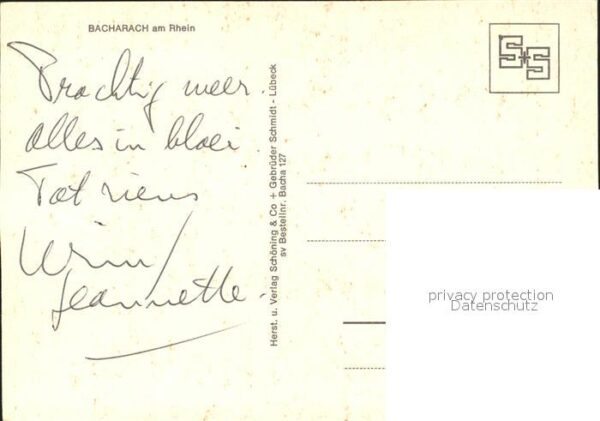 BACHARACH am Rhein
S+S
Prachtig weer.
Alles in bloei
Tot ziens
Wim/
Jeannette.
Herst. u. Verlag Schöning & Co + Gebrüder Schmidt - Lübeck
sv Bestellnr. Bacha 127
privacy protection
Datenschutz